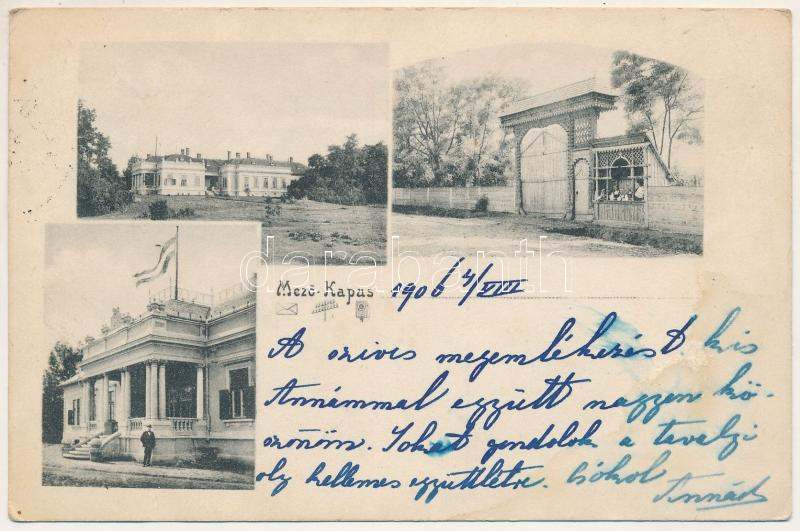 darabanth
Mező-Kapus 1906 4/VIII
A szives megemlékezést kis
Annámmal együtt nagyon kö-
szönöm. Sokat gondolok a tavalyi
oly kellemes együttlétre. Csókol
Annád